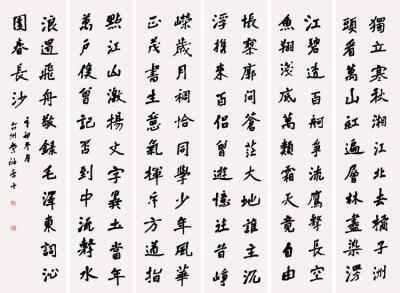 獨立寒秋湘江北去橘子洲
頭看萬山紅遍層林盡染漫
江碧透百舸爭流鷹擊長空
魚翔淺底萬類霜天競自由
悵寥廓問蒼茫大地誰主沉
浮攜來百侶曾遊憶往昔崢
嶸歲月稠恰同學少年風華
正茂書生意氣揮斥方遒指
點江山激揚文字糞土當年
萬戶侯曾記否到中流擊水
浪遏飛舟敬錄毛澤東詞沁
園春長沙
辛卯冬月